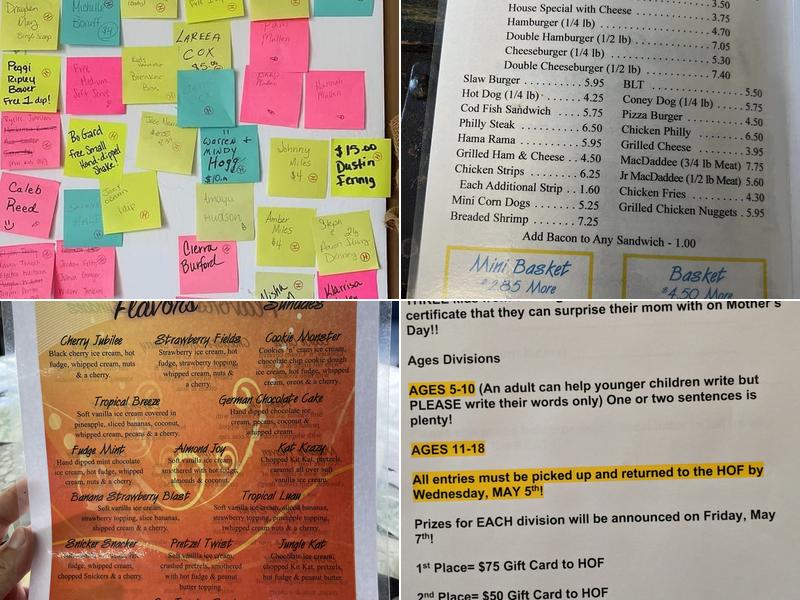 Michelle
Boruff
$4
LAREEA
COX
$5.00
Mullen
Peggi
Ripley
Bower
Free 1 dip!
Free
Medium
Soft Serve
Hannah
Mullen
Bo Gard
Free Small
Hand-dipped
Shake!
Warren +
MINDY
Hogg
$10.00
Johnny
Miles
$4
$15.00
Dustin
Fennig
Caleb
Reed
1 dip
Amaya
Hudson
Amber
Miles
$4
Cierra
Burford
Klarrisa
3.50
House Special with Cheese 3.75
Hamburger (1/4 lb) 4.70
Double Hamburger (1/2 lb) 7.05
Cheeseburger (1/4 lb) 5.30
Double Cheeseburger (1/2 lb) 7.40
Slaw Burger 5.95
Hot Dog (1/4 lb) 4.25
Cod Fish Sandwich 5.75
Philly Steak 6.50
Hama Rama 5.95
Grilled Ham & Cheese 4.50
Chicken Strips 6.25
Each Additional Strip 1.60
Mini Corn Dogs 5.25
Breaded Shrimp 7.25
BLT 5.50
Coney Dog (1/4 lb) 5.75
Pizza Burger 4.50
Chicken Philly 6.50
Grilled Cheese 3.95
MacDaddee (3/4 lb Meat) 7.75
Jr MacDaddee (1/2 lb Meat) 5.60
Chicken Fries 4.30
Grilled Chicken Nuggets 5.95
Add Bacon to Any Sandwich - 1.00
Mini Basket
$2.85 More
Basket
$4.50 More
Flavors
Sundaes
Cherry Jubilee
Black cherry ice cream, hot
fudge, whipped cream, nuts
& a cherry.
Strawberry Fields
Strawberry ice cream, hot
fudge, strawberry topping,
whipped cream, nuts & a
cherry.
Cookie Monster
Cookies 'n' cream ice cream,
chocolate chip cookie dough
ice cream, hot fudge, whipped
cream, oreos & a cherry.
Tropical Breeze
Soft vanilla ice cream covered in
pineapple, sliced bananas, coconut,
whipped cream, pecans & a cherry.
German Chocolate Cake
Hand dipped chocolate ice
cream, pecans, coconut &
whipped cream.
Fudge Mint
Hand dipped mint chocolate
ice cream, hot fudge, whipped
cream, nuts & a cherry.
Almond Joy
Soft vanilla ice cream
smothered with hot fudge,
almonds & coconut.
Kat Krazy
Chopped Kit Kat, pretzels,
caramel all over soft
vanilla ice cream.
Banana Strawberry Blast
Soft vanilla ice cream,
strawberry topping, slice bananas,
whipped cream, nuts & a cherry.
Tropical Luau
Soft vanilla ice cream, sliced bananas,
strawberry topping, pineapple topping,
whipped cream nuts & a cherry.
Snicker Snacker
ice cream, hot
fudge, whipped cream,
chopped Snickers & a cherry.
Pretzel Twist
Soft vanilla ice cream,
crushed pretzels, smothered
with hot fudge & peanut
butter topping
Jungle Kat
Chocolate ice cream,
chopped Kit Kat, pretzels,
hot fudge & peanut butter.
certificate that they can surprise their mom with on Mother's
Day!!
Ages Divisions
AGES 5-10 (An adult can help younger children write but
PLEASE write their words only) One or two sentences is
plenty!
AGES 11-18
All entries must be picked up and returned to the HOF by
Wednesday, MAY 5th!
Prizes for EACH division will be announced on Friday, May
7th!
1st Place= $75 Gift Card to HOF
2nd Place= $50 Gift Card to HOF